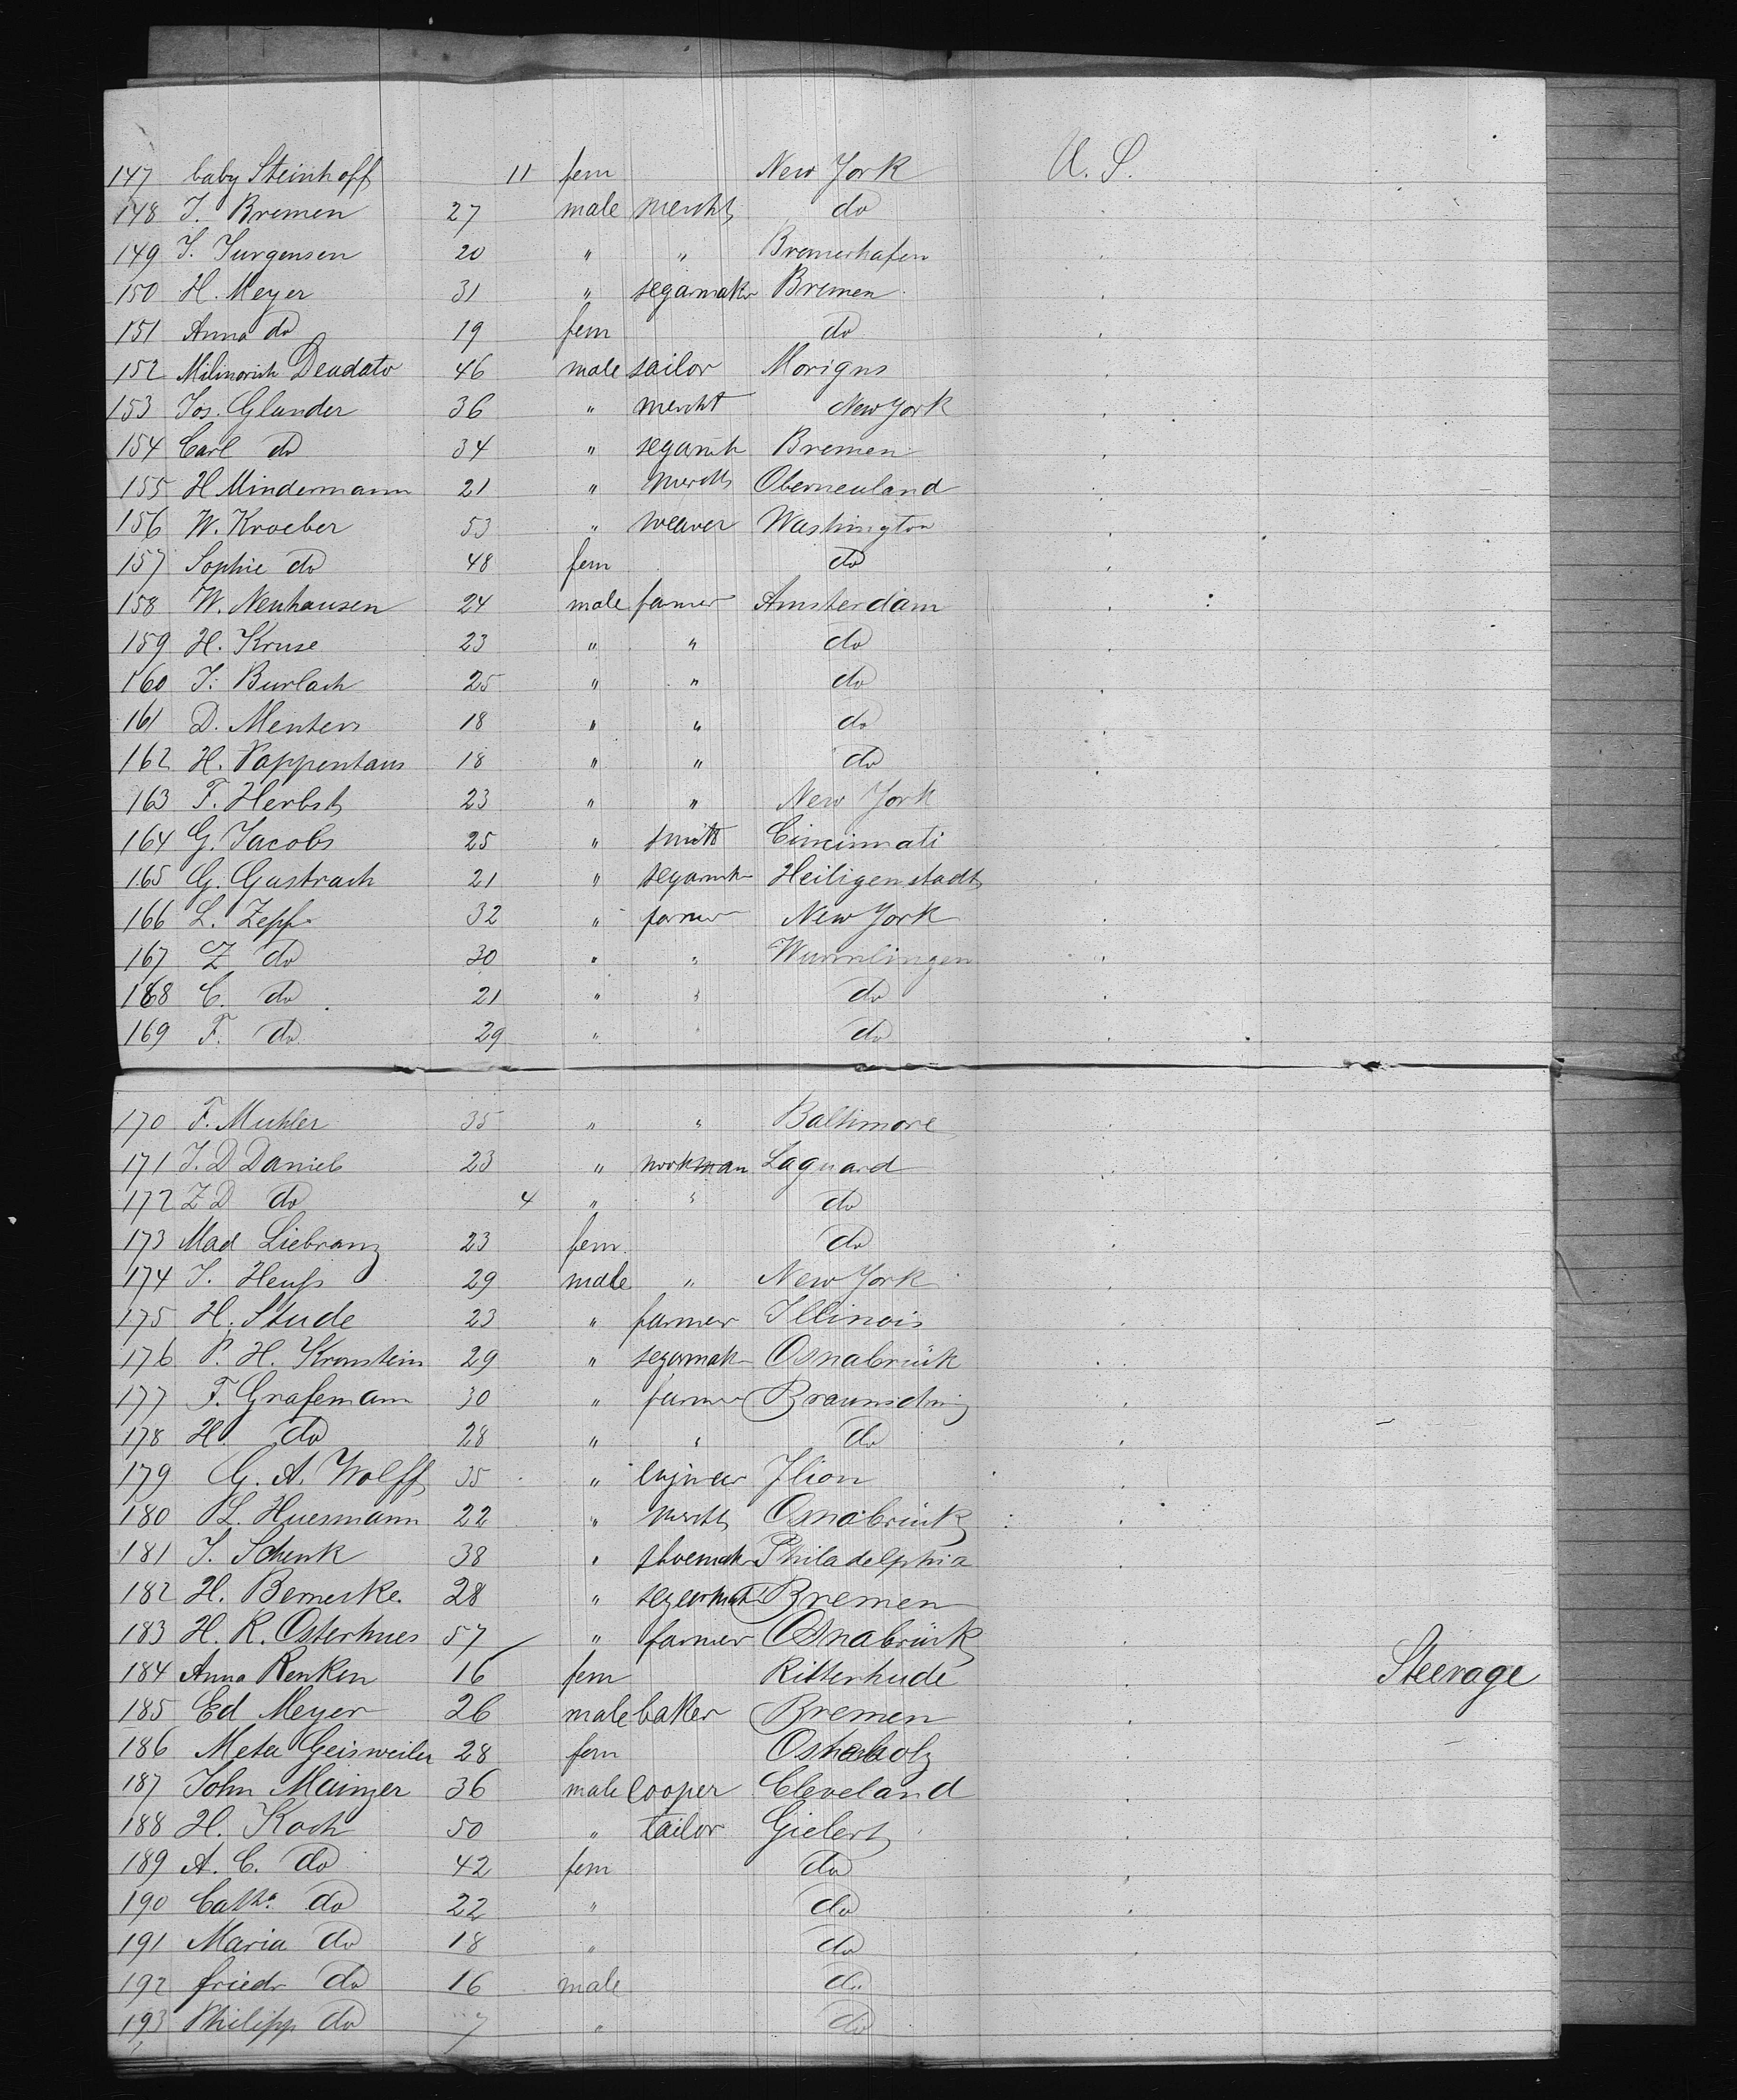 147 baby Steinhoff 11 fem New York U. S.
148 J. Bremen 27 male mercht do
149 J. Jurgensen 20 " " Bremerhafen
150 H. Meyer 31 " segarmakr Bremen
151 Anna do 19 fem do
152 Milinovich Deadato 46 male sailor Morigns
153 Jos. Glander 36 " mercht New York
154 Carl do 34 " segarmk Bremen
155 H Mindermann 21 " mercht Oberneuland
156 W. Kroeber 53 " weaver Washington
157 Sophie do 48 fem do
158 W. Neuhausen 24 male farmer Amsterdam
159 H. Kruse 23 " " do
160 J. Burlach 25 " " do
161 D. Menters 18 " " do
162 H. Pappenhaus 18 " " do
163 F. Herbst 23 " " New York
164 G. Jacobs 25 " smith Cincinnati
165 G. Gastrach 21 " segarmk Heiligenstadt
166 L. Zepf 32 " farmer New York
167 Z do 30 " " Wurmlingen
168 C. do 21 " " do
169 F. do 29 " " do
170 F. Muhler 35 " " Baltimore
171 J. D Daniels 23 " workman Laguard
172 Z D do 4 " " do
173 Mad Liebranz 23 fem do
174 J. Heuss 29 male " New York
175 H. Stude 23 " farmer Illinois
176 P. H. Kronstein 29 " segarmak Osnabrück
177 F. Grafeman 30 " farmer Braunschwg
178 H. do 28 " " do
179 G. A. Wolff 35 " Ilion
180 L. Huesmann 22 " mercht Osnabrück
181 J. Schenk 38 " shoemak Philadelphia
182 H. Berneske 28 " segarmak Bremen
183 H. R. Osterhues 57 " farmer Osnabrück
184 Anna Renken 16 fem Ritterhude Steerage
185 Ed Meyer 26 male baker Bremen
186 Meta Geisweiler 28 fem Osterholz
187 John Mainzer 36 male Cooper Cleveland
188 H. Koch 50 " tailor Gielert
189 A. C. do 42 fem do
190 Catha do 22 " do
191 Maria do 18 " do
192 friedr do 16 male do
193 Philipp do 7 " do